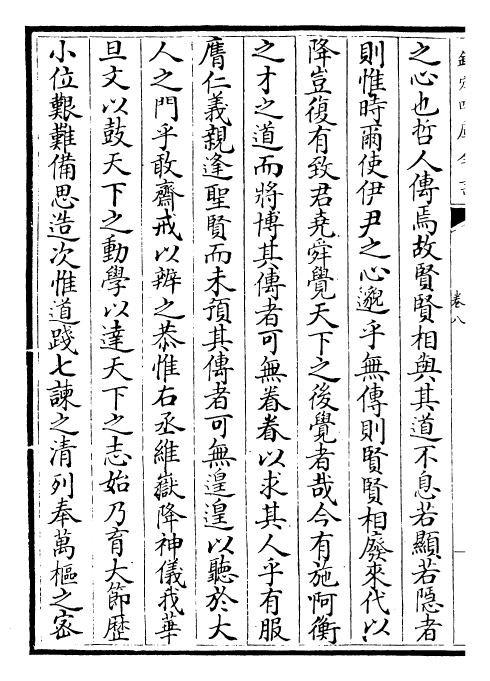 欽定四庫全書
卷八
之心也哲人傳焉故賢賢相與其道不息若顯若隱者
則惟時爾使伊尹之心邈乎無傳則賢賢相廢來代以
降豈復有致君堯舜覺天下之後覺者哉今有施阿衡
之才之道而將博其傳者可無眷眷以求其人乎有服
膺仁義親逢聖賢而未預其傳者可無遑遑以聽於大
人之門乎敢齋戒以辨之恭惟右丞維嶽降神儀我華
旦文以鼓天下之動學以達天下之志始乃育大節歷
小位艱難備思造次惟道踐七諫之清列奉萬樞之密